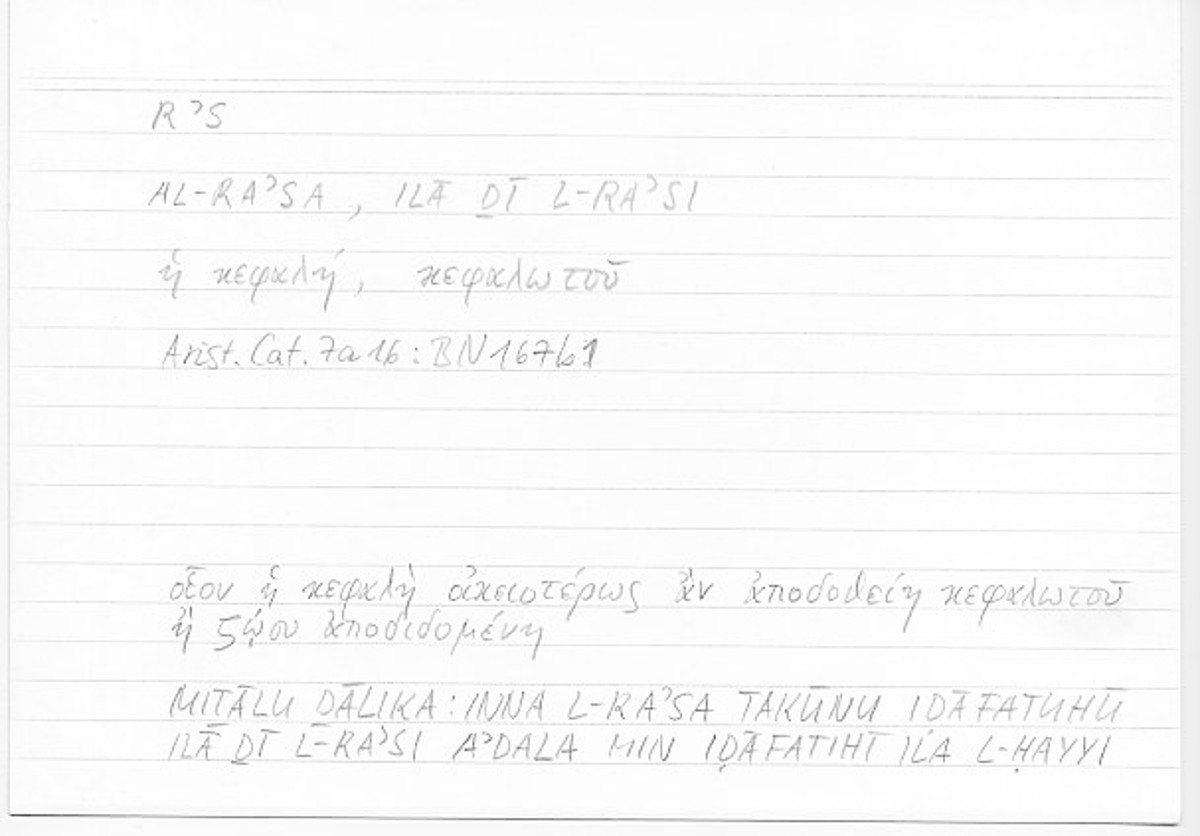 RʾS
AL-RAʾSA, ILĀ ḎĪ L-RAʾSI
ἡ κεφαλή, κεφαλωτοῦ
Arist. Cat. 7a16: BN 167b1
οἷον ἡ κεφαλὴ οἰκειοτέρως ἂν ἀποδοθείη κεφαλωτοῦ
ἢ ζῴου ἀποδιδομένη
MITĀLU DĀLIKA: INNA L-RAʾSA TAKŪNU IDĀFATUHŪ
ILĀ ḎĪ L-RAʾSI AʾDALA MIN IḌĀFATIHĪ ILĀ L-ḤAYYI